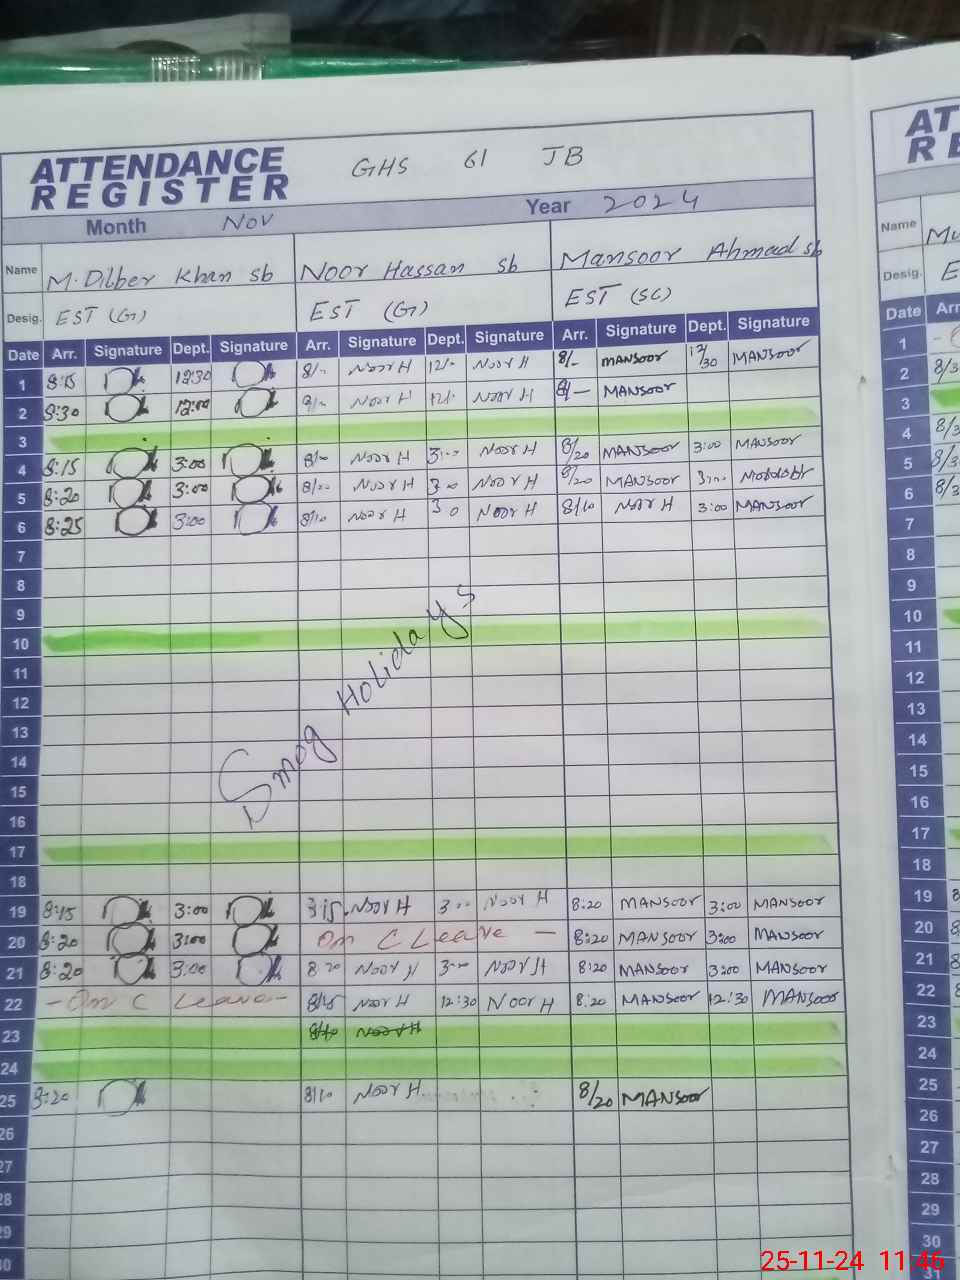 ATTENDANCE
REGISTER
GHS 61 JB
Month Nov Year 2024
Name M. Dilber Khan sb Noor Hassan sb Mansoor Ahmad sb
Desig. EST (G) EST (G) EST (SC)
Date Arr. Signature Dept. Signature Arr. Signature Dept. Signature Arr. Signature Dept. Signature
1 8:15 12:30 8/- Noor H 12/- Noor H 8/- MANSOOR 12/30 MANSOOR
2 8:30 12:00 8/- Noor H 12/- Noor H 8/- MANSOOR
3
4 8:15 3:00 8/- Noor H 3:- Noor H 8/20 MANSOOR 3:00 MANSOOR
5 8:20 3:00 8/- Noor H 3:0 Noor H 8/20 MANSOOR 3:--
6 8:25 3:00 8/10 Noor H 3:0 Noor H 8/10 3:00 MANSOOR
7
8
9
10
11
12
13
14
15
16
17
18
Smog Holidays
19 8:15 3:00 Noor H 3:-- Noor H 8:20 MANSOOR 3:00 MANSOOR
20 8:20 3:00 On C Leave - 8:20 MANSOOR 3:00 MANSOOR
21 8:20 3:00 8 20 Noor H 3:-- Noor H 8:20 MANSOOR 3:00 MANSOOR
22 - On C Leave - 8/15 Noor H 12:30 Noor H 8:20 MANSOOR 12:30 MANSOOR
23 8/10 Noor H
24
25 8:20 8/10 Noor H 8/20 MANSOOR
26
27
28
29
30
AT
RE
Name Mu
Desig. E
Date Arr
1 -
2 8/3
3
4 8/3
5 8/3
6 8/3
7
8
9
10
11
12
13
14
15
16
17
18
19 8
20 8
21 8
22 8
23
24
25
26
27
28
29
30
31
25-11-24 11:46